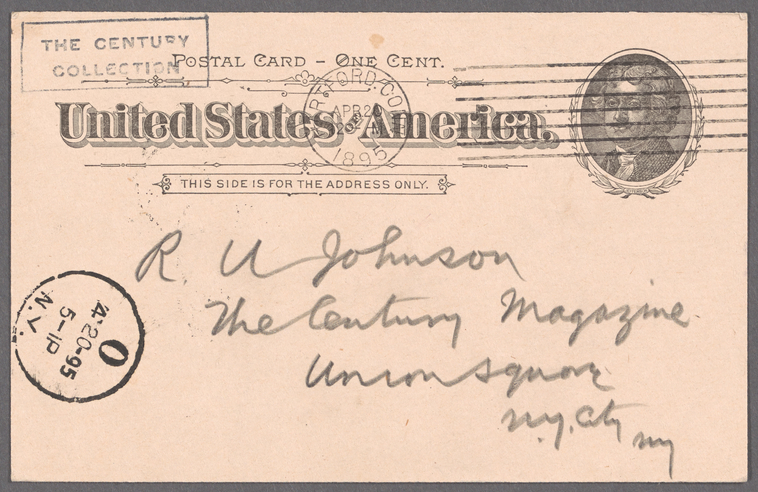 THE CENTURY
COLLECTION
POSTAL CARD - ONE CENT.
RTFORD, CO
APR 20
1895
United States of America.
THIS SIDE IS FOR THE ADDRESS ONLY.
R U Johnson
The Century Magazine
Union Square
N.Y. City
NY
O
4-20-95
5-1P
N.Y.